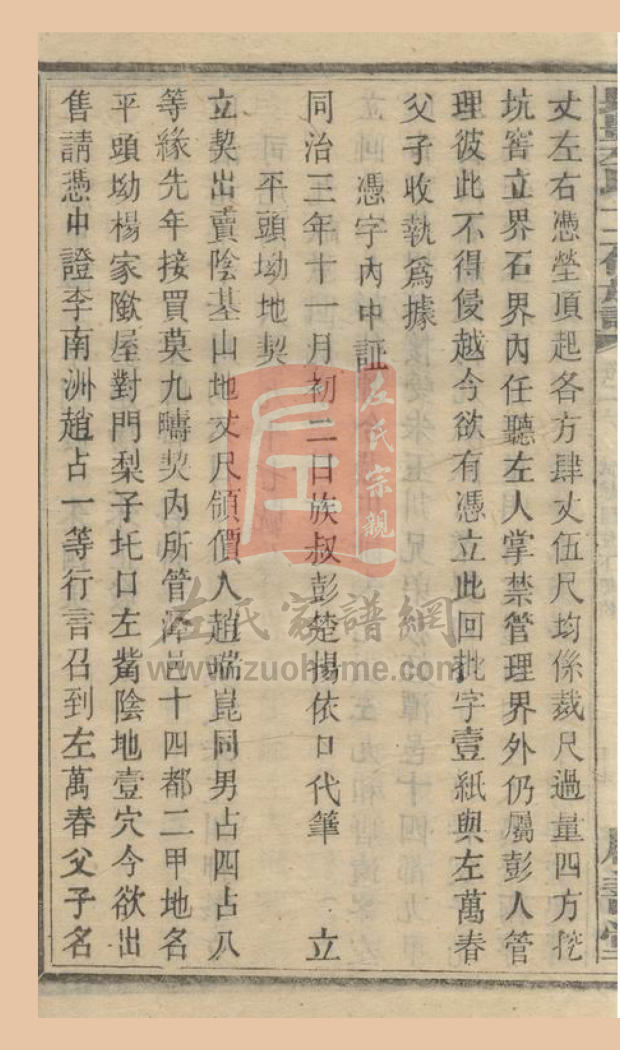 丈左右憑塋頂起各方肆丈伍尺均係裁尺過量四方挖
坑窖立界石界內任聽左人掌禁管理界外仍屬彭人管
理彼此不得侵越今欲有憑立此回批字壹紙與左萬春
父子收執爲據
憑字內中証
同治三年十一月初二日族叔彭楚揚依口代筆 立
平頭坳地契
立契出賣陰基山地丈尺領價人趙喘崑同男占四占八
等緣先年接買莫九疇契內所管潭邑十四都二甲地名
平頭坳楊家隞屋對門梨子圫口左觜陰地壹穴今欲出
售請憑中證李南洲趙占一等行言召到左萬春父子名
左氏宗親
左氏家譜網
www.zuohome.com